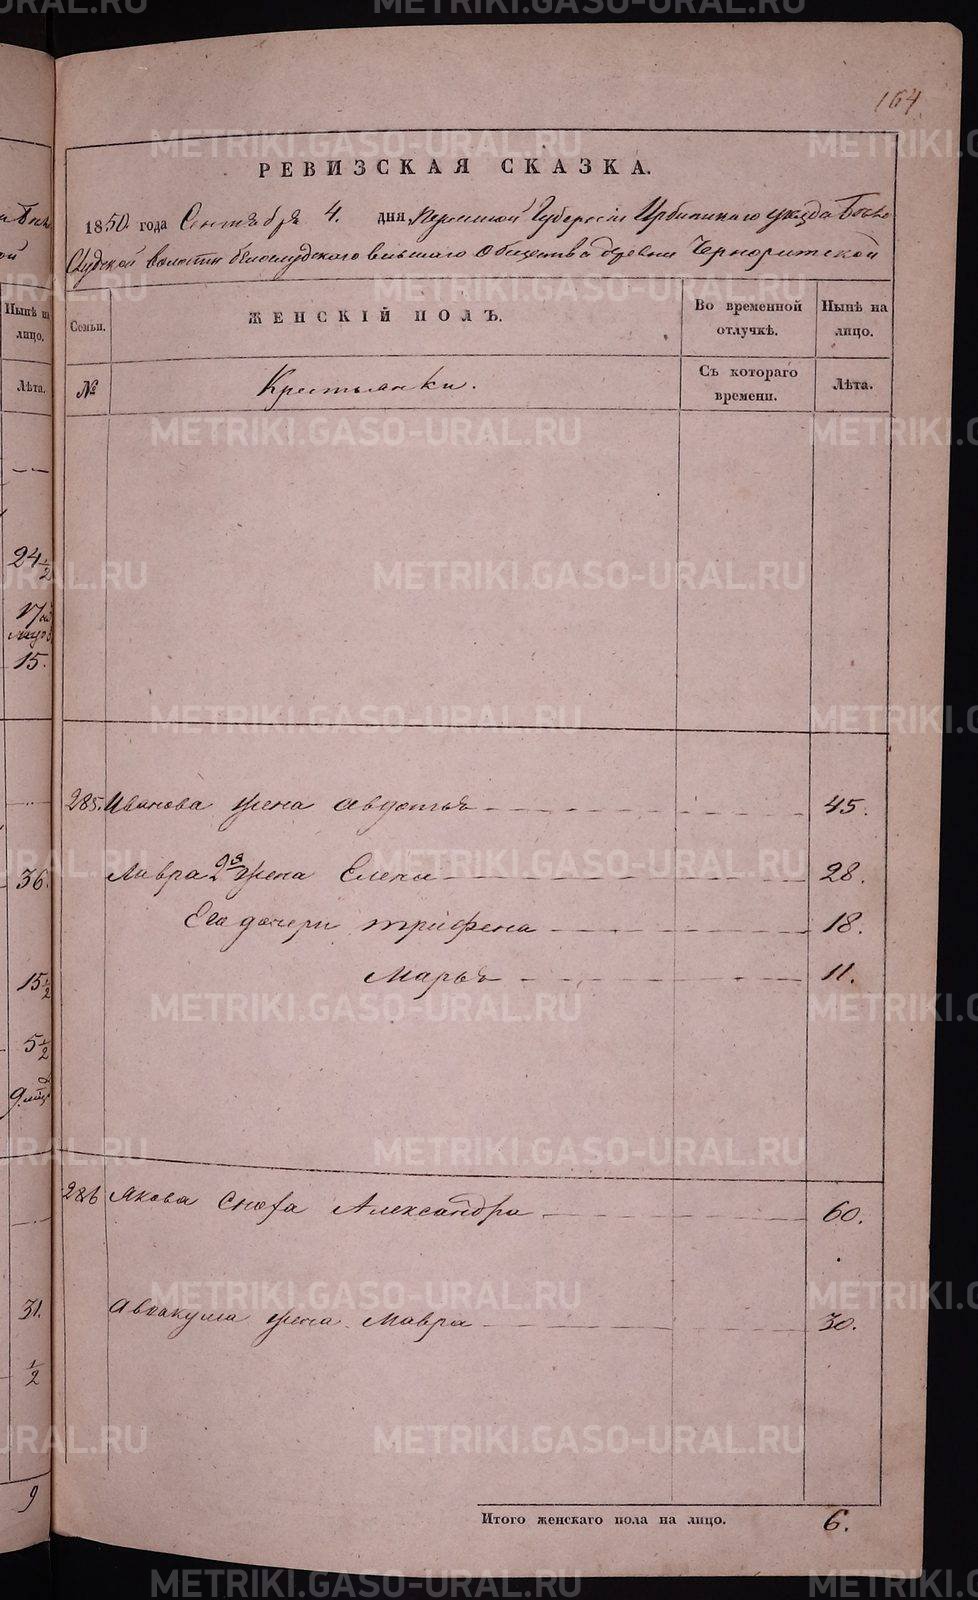 164
РЕВИЗСКАЯ СКАЗКА.
1850 года Сентября 4. дня, Пермской Губернiи Ирбитскаго уезда Бело
Слудской волости белослудского вышаго общества деревни Чернорицской
Семьи.
ЖЕНСКIЙ ПОЛЪ.
Во временной отлучкѣ.
Нынѣ на лицо.
№
Крестьянки.
Съ котораго времени.
Лѣта.
285. Иванова жена Авдотья 45.
Лавра 2я жена Елена 28.
Его дочери трифена 18.
Марья 11.
286 Якова сноха Александра 60.
Авакума жена Мавра 30.
Итого женскаго пола на лицо. 6.
Нынѣ на лицо.
Лѣта.
24 1/2
15.
36.
15 1/2
5 1/2
31.
1/2
9
METRIKI.GASO-URAL.RU